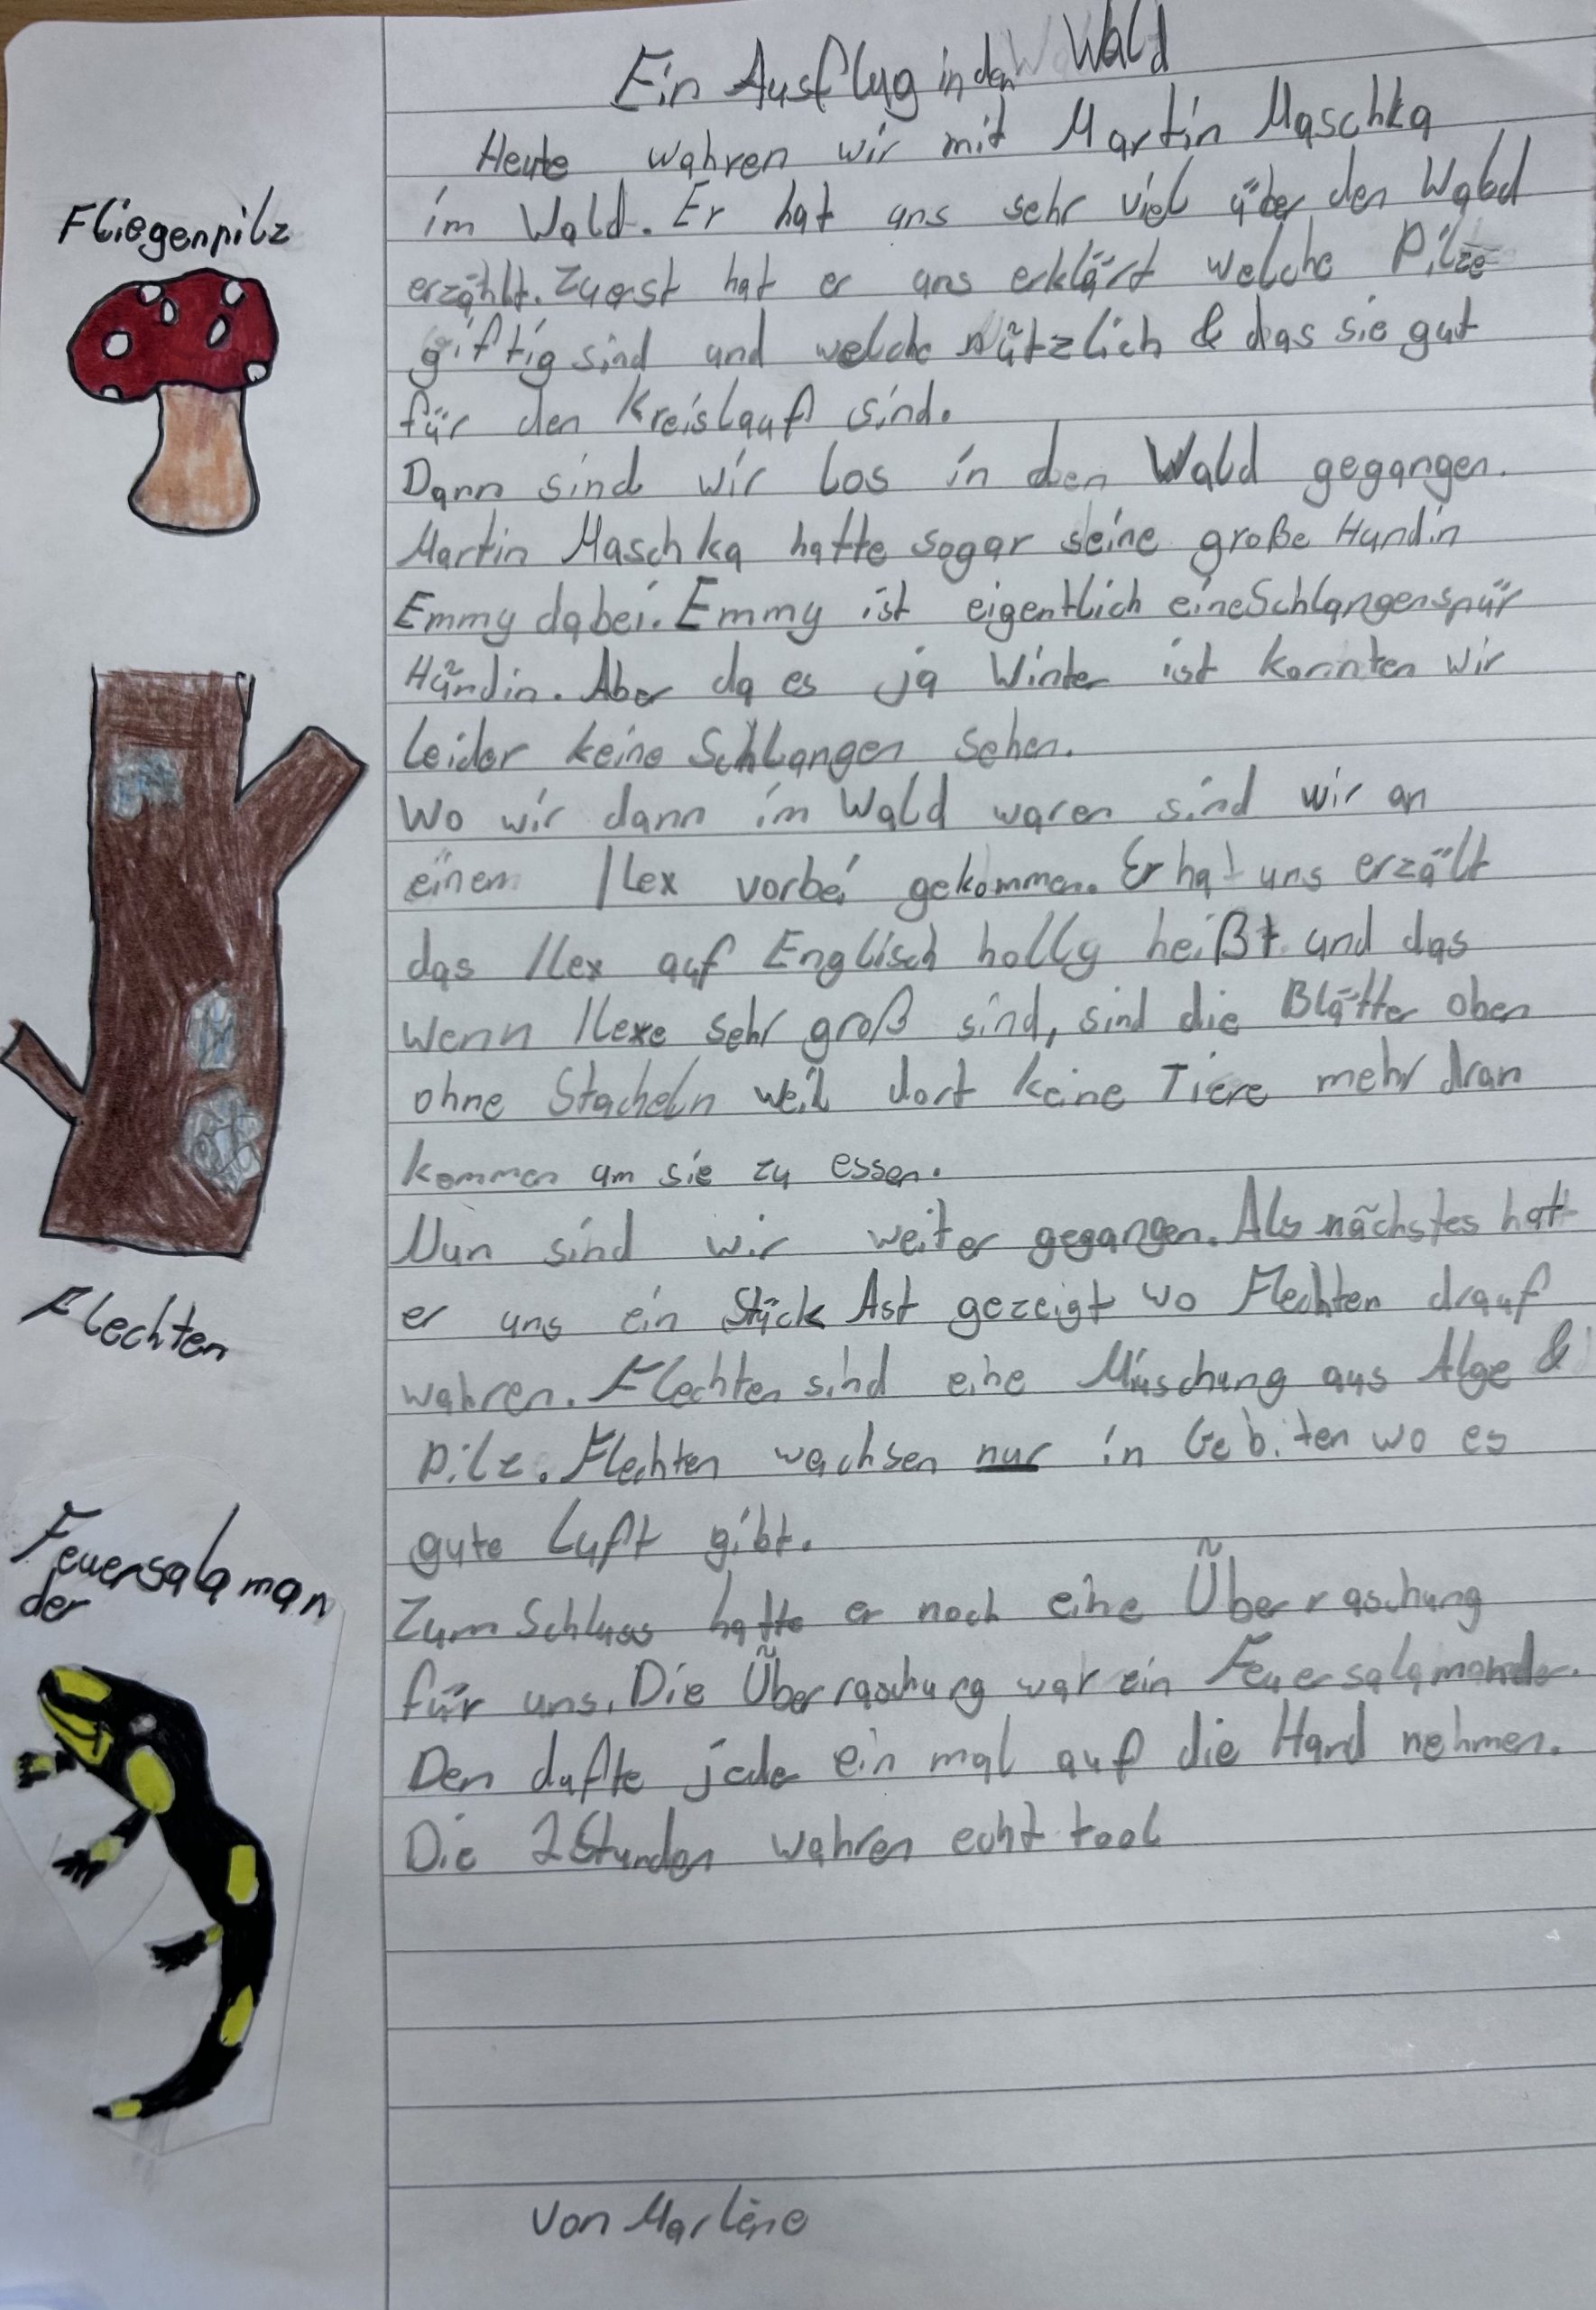 Ein Ausflug in den Wald
Heute wahren wir mit Martin Maschka
im Wald. Er hat uns sehr viel über den Wald
erzählt. Zuerst hat er uns erklärt welche Pilze
giftig sind und welche nützlich & das sie gut
für den Kreislauf sind.
Dann sind wir los in den Wald gegangen.
Martin Maschka hatte sogar seine große Hündin
Emmy dabei. Emmy ist eigentlich eine Schlangenspür
Hündin. Aber da es ja Winter ist konnten wir
leider keine Schlangen sehen.
Wo wir dann im Wald waren sind wir an
einem Ilex vorbei gekommen. Er hat uns erzält
das Ilex auf Englisch holly heißt und das
wenn Ilexe sehr groß sind, sind die Blätter oben
ohne Stacheln weil dort keine Tiere mehr dran
kommen um sie zu essen.
Nun sind wir weiter gegangen. Als nächstes hat
er uns ein Stück Ast gezeigt wo Flechten drauf
wahren. Flechten sind eine Mischung aus Alge &
Pilz. Flechten wachsen nur in Gebiten wo es
gute Luft gibt.
Zum Schluss hatte er noch eine Überraschung
für uns. Die Überraschung war ein Feuersalamander.
Den dufte jeder ein mal auf die Hand nehmen.
Die 2 Stunden wahren echt tool
von Marlene
Fliegenpilz
Flechten
Feuersalaman
der